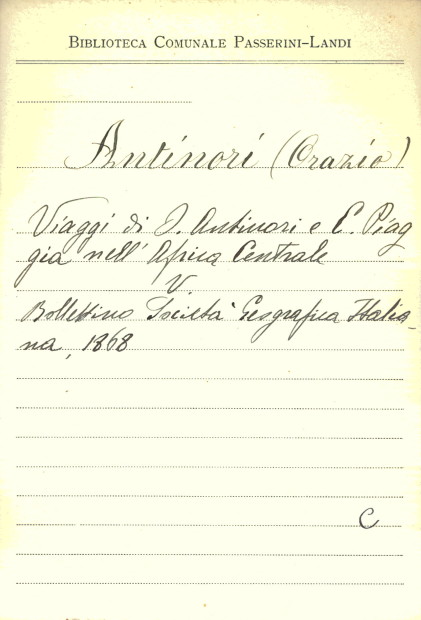 BIBLIOTECA COMUNALE PASSERINI-LANDI
Antinori (Orazio)
Viaggi di O. Antinori e C. Piag
gia nell' Africa Centrale
V.
Bollettino Società Geografica Italia-
na, 1868
C